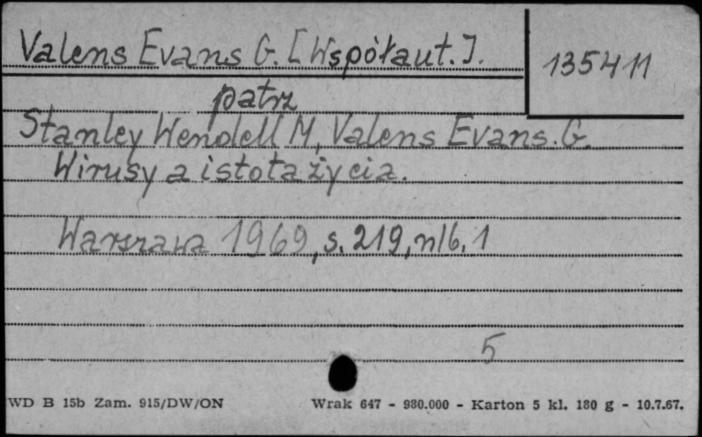 Valens Evans G. [Współaut.].
135411
patrz
Stanley Wendell M, Valens Evans. G.
Wirusy a istota życia.
Warszawa 1969, s. 219, nlb. 1
5
WD B 15b Zam. 915/DW/ON Wrak 647 - 930.000 - Karton 5 kl. 180 g - 10.7.67.